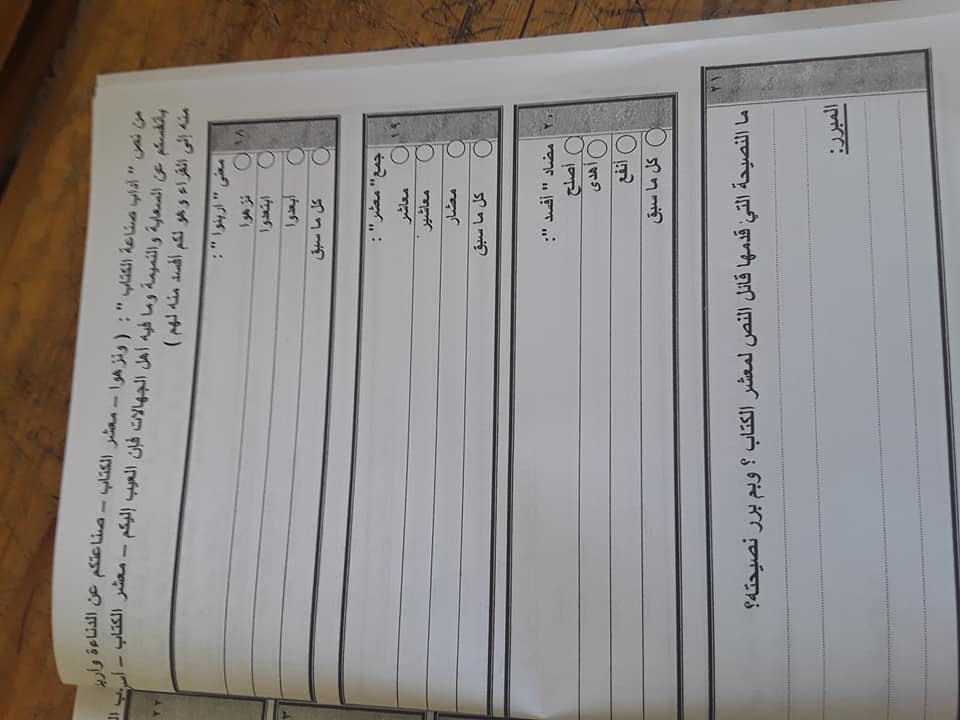 من نص " آداب صناعة الكتاب " : ( ونزهوا – معشر الكتاب – صناعتكم عن الدناءة واربئوا
بأنفسكم عن السعاية والنميمة وما فيه أهل الجهالات فإن العيب إليكم – معشر الكتاب – أسرع
منه إلى الفراء وهو لكم أفسد منه لهم )
١٨
معنى " اربئوا " :
نزهوا
ابتعدوا
ابعدوا
كل ما سبق
١٩
جمع " معشر " :
معاشر
معاشير
معشار
كل ما سبق
٢٠
مضاد " أفسد ":
أصلح
أهدى
أنفع
كل ما سبق
٢١
ما النصيحة التي قدمها قائل النص لمعشر الكتاب ؟ وبم برر نصيحته؟
المبرر:
٢٢